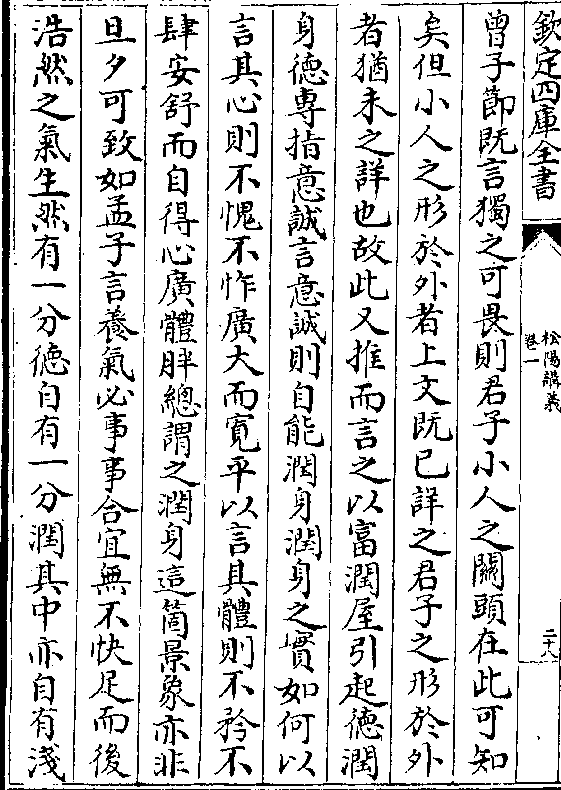 欽定四庫全書
松陽講義
卷一
二十八
曾子節既言獨之可畏則君子小人之關頭在此可知
矣但小人之形於外者上文既已詳之君子之形於外
者猶未之詳也故此又推而言之以富潤屋引起德潤
身德專指意誠言意誠則自能潤身潤身之實如何以
言其心則不愧不怍廣大而寛平以言其體則不矜不
肆安舒而自得心廣體胖總謂之潤身這箇景象亦非
旦夕可致如孟子言養氣必事事合宜無不快足而後
浩然之氣生然有一分德自有一分潤其中亦自有淺